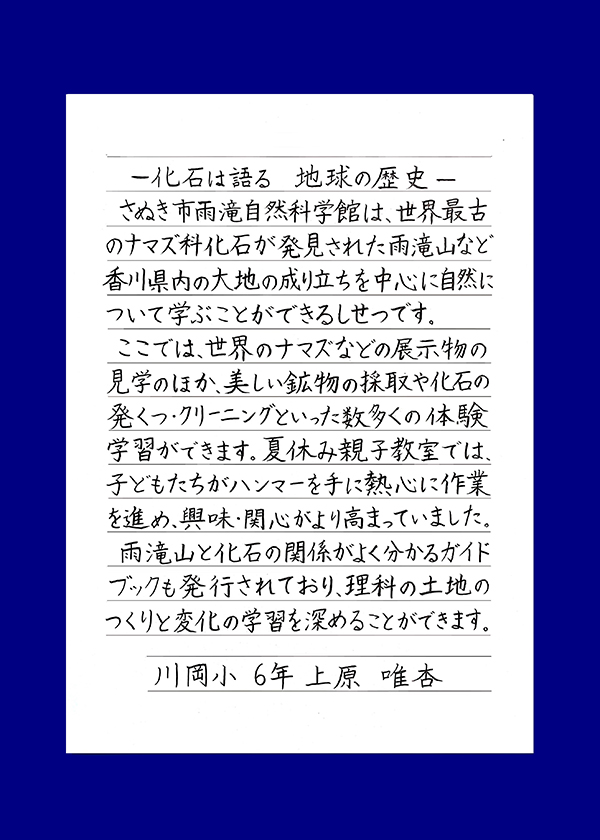 ー化石は語る 地球の歴史ー
さぬき市雨滝自然科学館は、世界最古
のナマズ科化石が発見された雨滝山など
香川県内の大地の成り立ちを中心に自然に
ついて学ぶことができるしせつです。
ここでは、世界のナマズなどの展示物の
見学のほか、美しい鉱物の採取や化石の
発くつ・クリーニングといった数多くの体験
学習ができます。夏休み親子教室では、
子どもたちがハンマーを手に熱心に作業
を進め、興味・関心がより高まっていました。
雨滝山と化石の関係がよく分かるガイド
ブックも発行されており、理科の土地の
つくりと変化の学習を深めることができます。
川岡小 6年 上原 唯杏